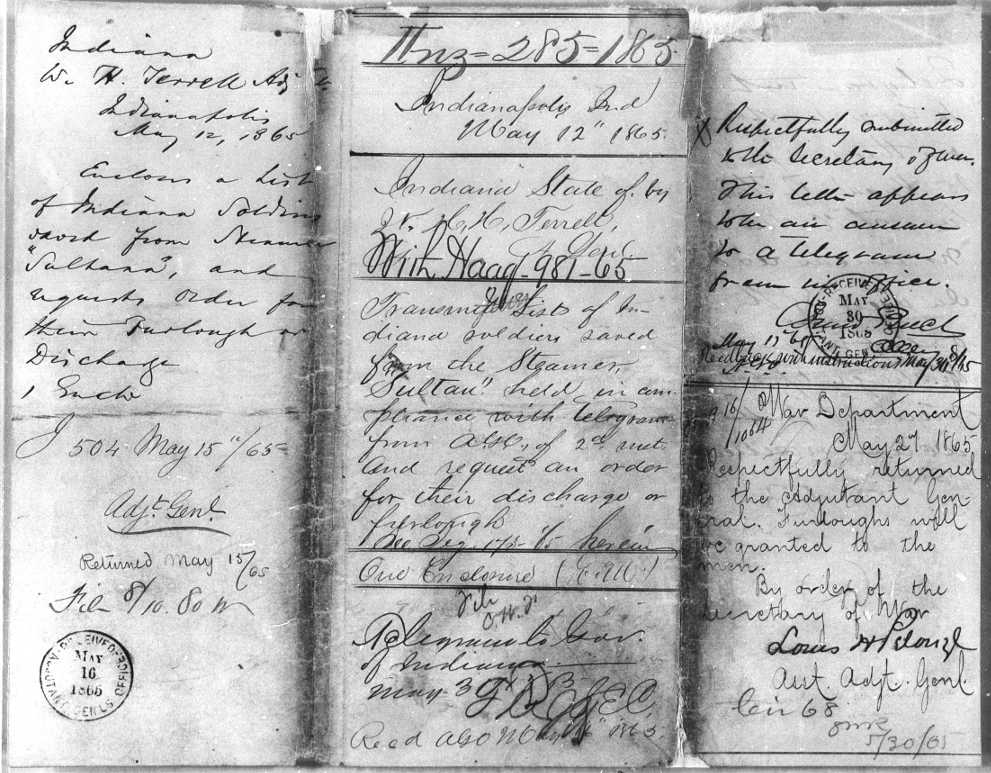 Indiana
W. H. Terrell Adj
Indianapolis
May 12, 1865
Encloses a List
of Indiana Soldiers
saved from Steamer
"Sultana", and
requests order for
their Furlough or
Discharge
1 Enclo
J 504 May 15"/65
Adjt. Genl.
Returned May 15/65
File 8/10. 80
RECEIVED
MAY
16
1865
ADJUTANT GENLS OFFICE
285=1865
Indianapolis Ind
May 12" 1865
Indiana State of. by
W. H. H. Terrell,
With Haag-981-65
Transmits Lists of In-
diana soldiers saved
from the Steamer,
Sultan" held in com-
pliance with telegram
from A.G.O. of 2nd inst
and request an order
for their discharge or
furlough
herein
One Enclosure
File
Telegram to Gov.
of Indiana
May 3
Recd AGO May 16" 1865.
Respectfully submitted
to the Secretary of War.
This letter appears
to be an answer
to a telegram
from his office.
RECEIVED
MAY
30
1865
ADJUTANT GENLS OFFICE
May 15" 65
with instructions May 30/65
War Department
May 27 1865
Respectfully returned
to the Adjutant Gen-
eral. Furloughs will
be granted to the
men.
By order of the
Secretary of War
Louis H Pelouze
Asst. Adjt. Genl.
Cir 68
5/30/65